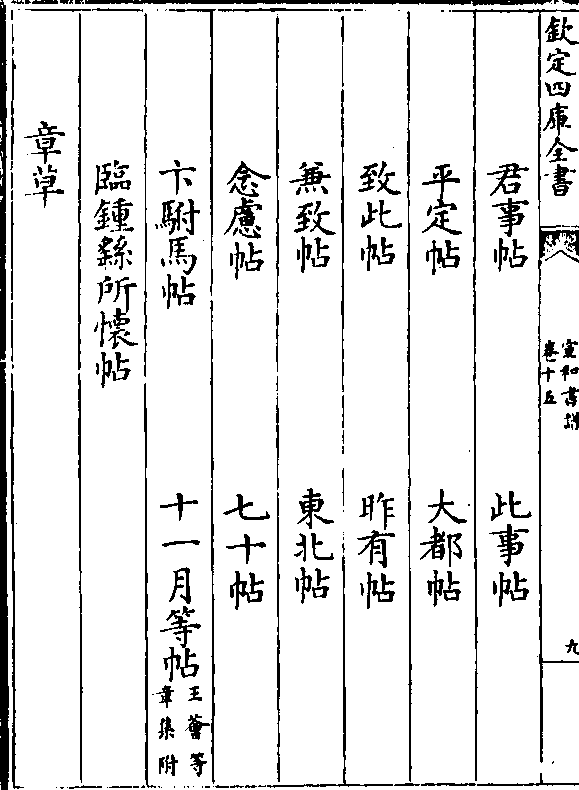 欽定四庫全書
宣和書譜
卷十五
九
君事帖
此事帖
平定帖
大都帖
致此帖
昨有帖
兼致帖
東北帖
念慮帖
七十帖
卞駙馬帖
十一月等帖
王薈等
章集附
臨鍾繇所懐帖
章草